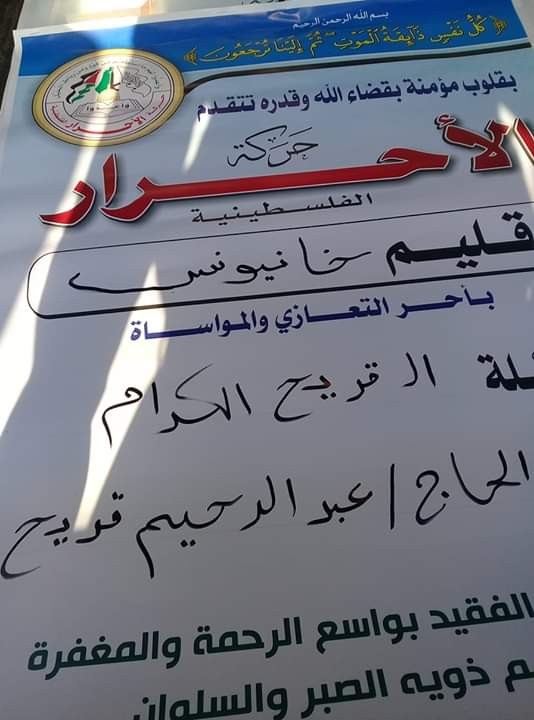 بسم الله الرحمن الرحيم
كُلُّ نَفْسٍ ذَائِقَةُ الْمَوْتِ ثُمَّ إِلَيْنَا تُرْجَعُونَ
بقلوب مؤمنة بقضاء الله وقدره تتقدم
حركة
الأحرار
الفلسطينية
قليم خانيونس
بأحر التعازي والمواساة
ئلة ال قريح الكرام
الحاج / عبد الرحيم قريح
الفقيد بواسع الرحمة والمغفرة
م ذويه الصبر والسلوان